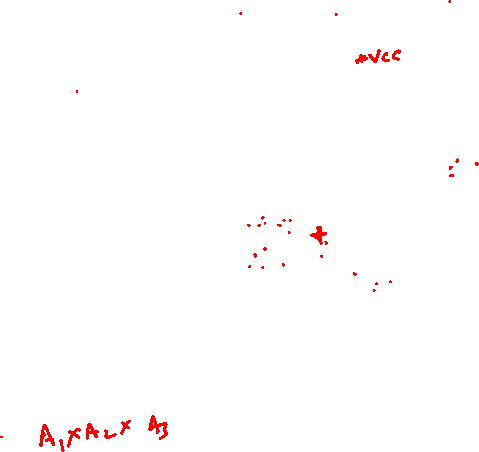 VCC
A1xA2x A3